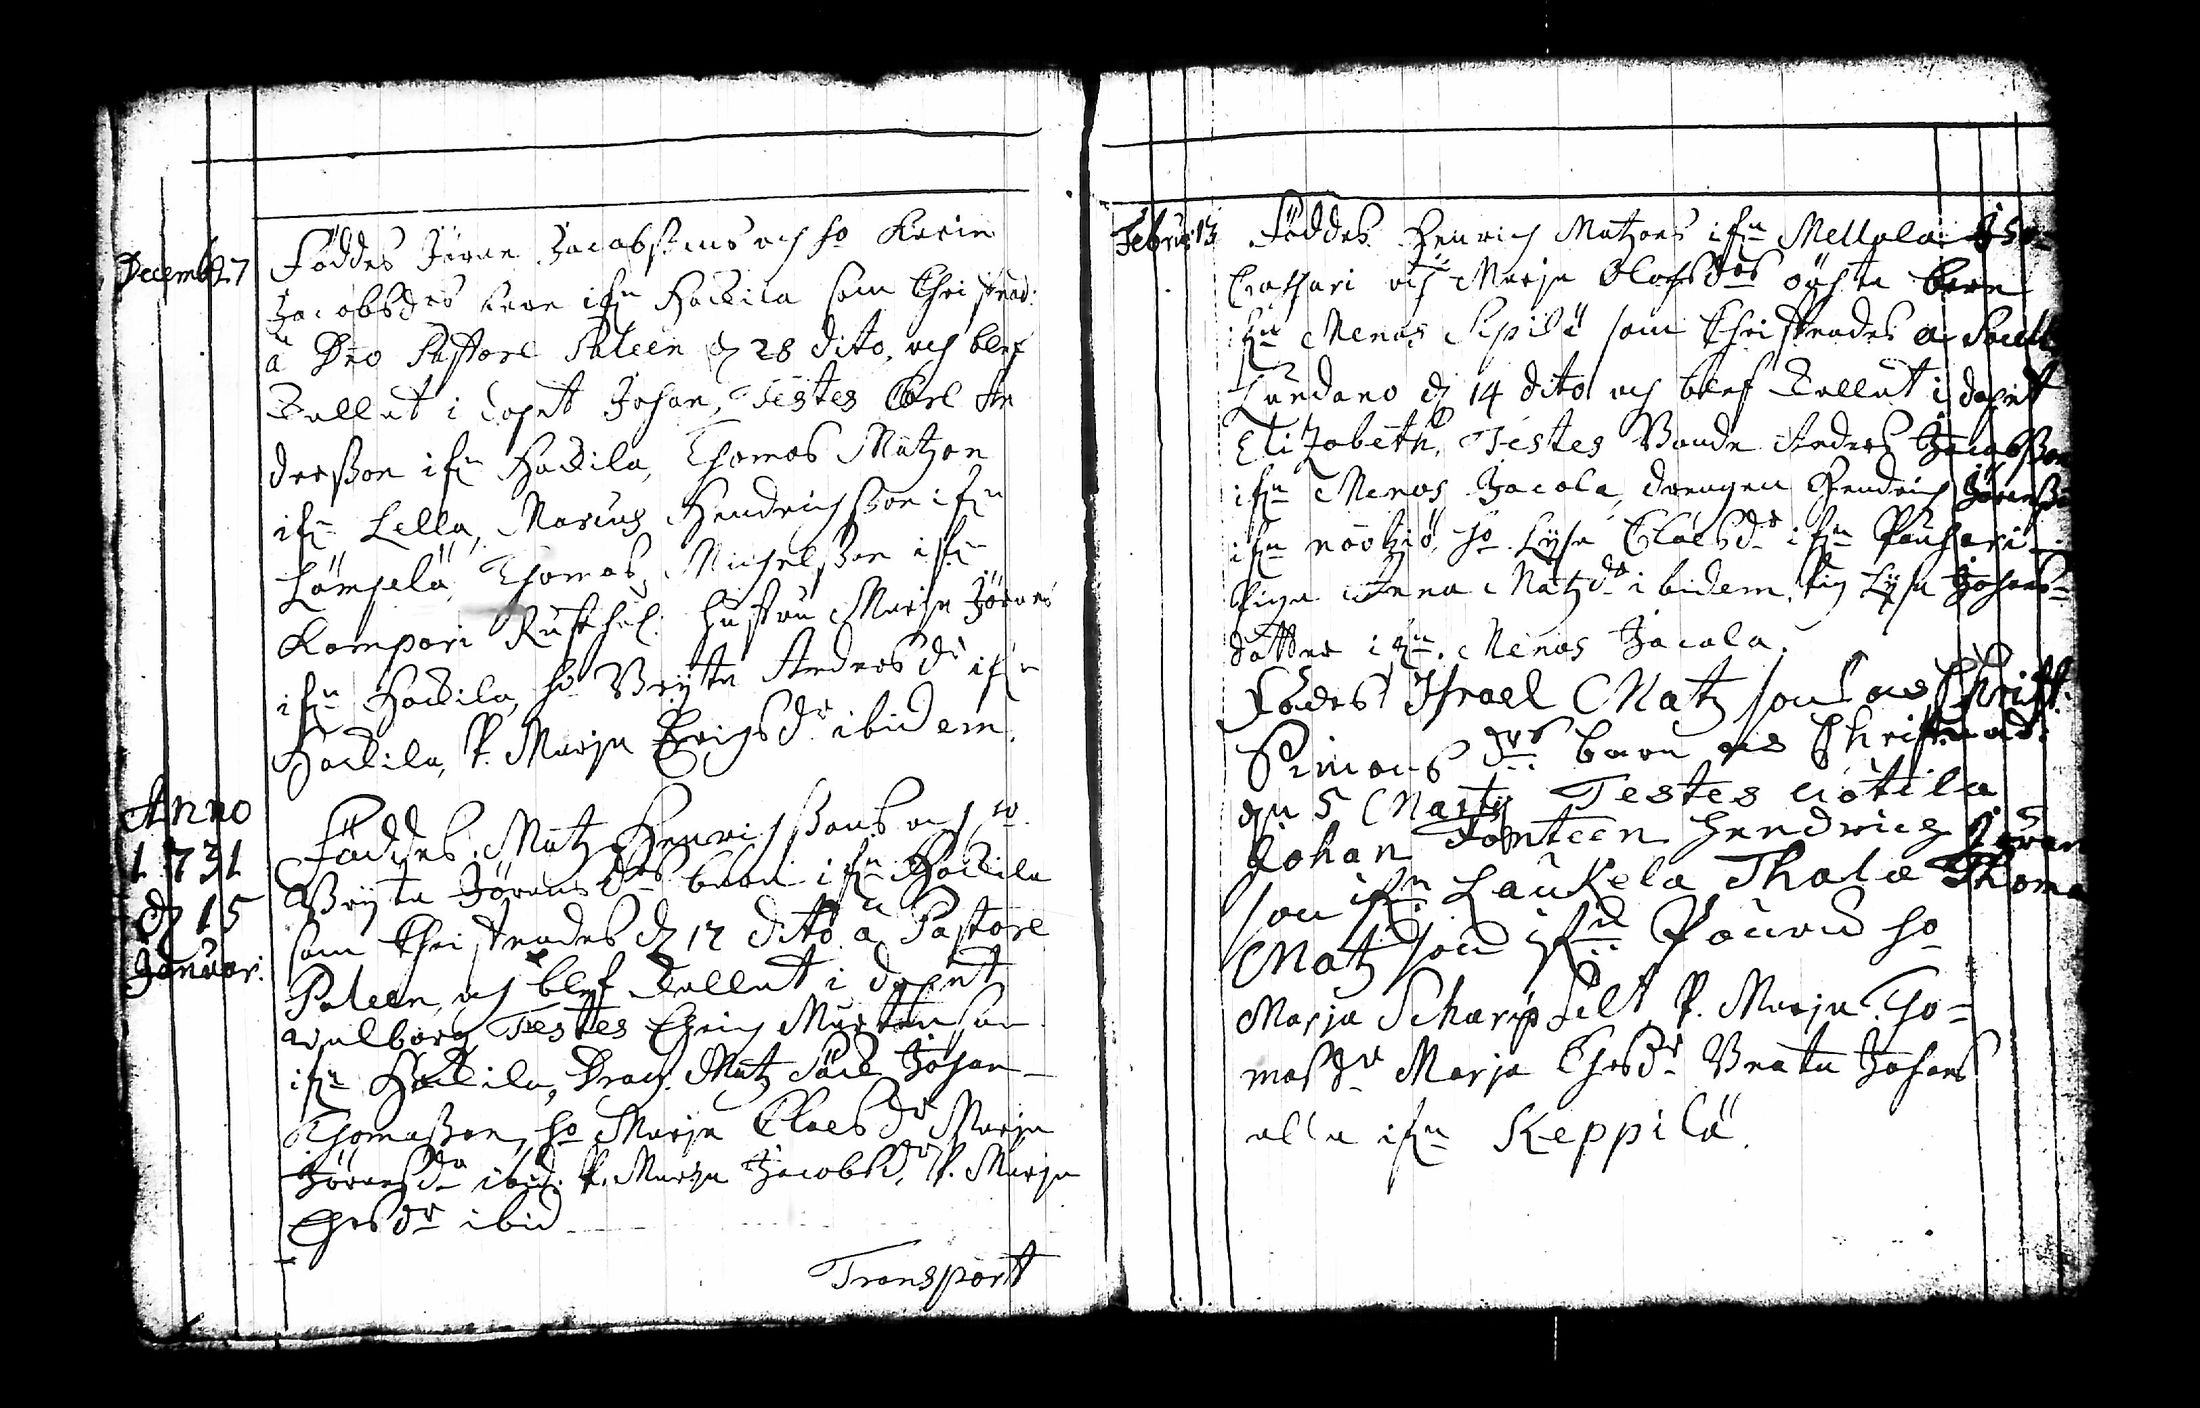 Decemb 27
Föddes Jöran Jacobssons och ho Karin
Jacobsdrs barn ifrn Hackila som Christnad:
a Dno Pastore Paleen d 28 dito, och blef
Kallat i dopet Johan, Testes Carl An
dersson ifn Hackila, Thomas Matzon
ifn Lella, Marcus Hendrichsson ifn
Lämpelä, Thomas Michelsson ifn
Kompari Rusthol. hustru Marja Jörans
ifn Hackila, ho Brijta Andersdr ifn
Hackila, P. Marja Erigsdr ibidem.
Anno
1731
d 15
Januar:
Föddes Matz Henrichssons och ho
Brijta Jöransdrs barn ifn Hackila
som Christnades d 17 dito a Pastore
Paleen, och blef Kallat i dopet
Walborg Testes Marten son
ifn Hackila, Drag. Matz Johan
Thomasson, ho Marja Claesdr Marja
Jöransdr ibid. P. Marja Jacobsdr, P. Marja
dr ibid
Transport
Febru: 13
Föddes Henrich Matzons ifn Mellola
och Marja Olofsdrs barn
ifn Menos Sepilä som Christnades a Sacell:
Lundano d 14 dito och blef Kallat i dopet
Elizabeth, Testes Bonde Anders Jacobsson
ifn Menos Jacola, drengen Hendrich Jöransson
ifn nootziö, ho Lijsa Claesdr ifn Pauhari
Piga Anna Matzdr ibidem, Pig Lijsa Johans=
dotter ifn Menos Jacola.
Födes Israel Matz sons
Simons drs barn Christnad:
dn 5 Martij Testes
Johan Fonteen Hendrich Jöran
son ifn Laukela Thomas
Matz son ifn ho
Marja Scharpfelt P. Marja Tho=
masdr Marja dr Beata Johans
alla ifn Keppilä.